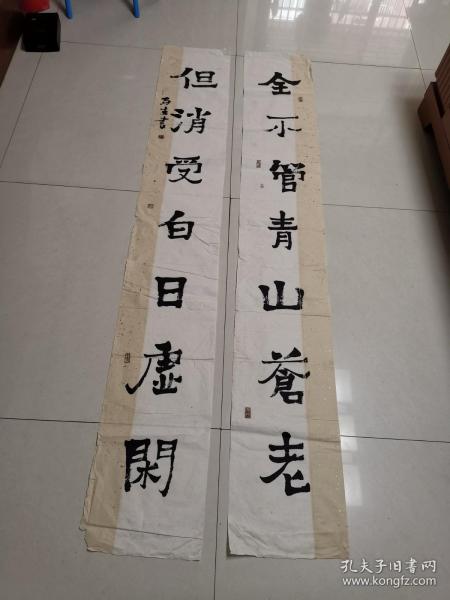 全不管青山蒼老
但消受白日虛閑
石吉書
孔夫子旧书网
www.kongfz.com